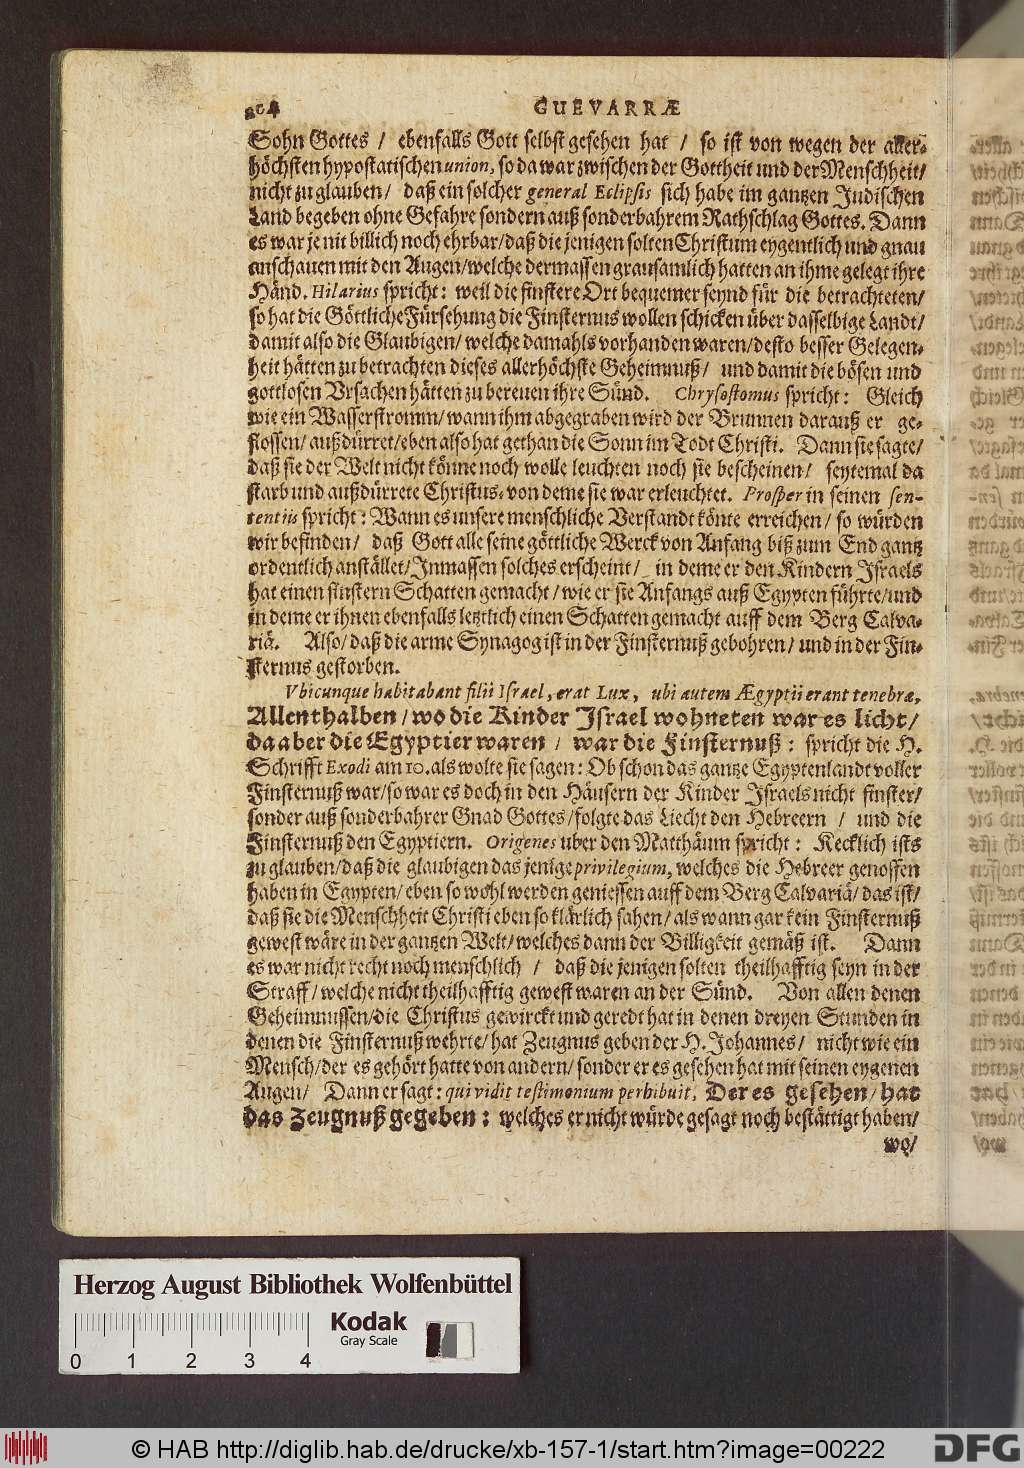 204 GUEVARRÆ
Sohn Gottes / ebenfalls Gott selbst gesehen hat / so ist von wegen der aller-
höchsten hypostatischen union, so da war zwischen der Gottheit und der Menschheit/
nicht zu glauben / daß ein solcher general Eclipsis sich habe im gantzen Judischen
Land begeben ohne Gefahre sondern auß sonderbahrem Rathschlag Gottes. Dann
es war je nit billich noch ehrbar/ daß die jenigen solten Christum eygentlich und gnau
anschauen mit den Augen/ welche dermassen grausamlich hatten an ihme gelegt ihre
Händ. Hilarius spricht: weil die finstere Ort bequemer seynd für die betrachteten/
so hat die Göttliche Fürsehung die Finsternus wollen schicken über dasselbige Landt/
damit also die Glaubigen/ welche damahls vorhanden waren/ desto besser Gelegen-
heit hätten zu betrachten dieses allerhöchste Geheimnuß/ und damit die bösen und
gottlosen Vrsachen hätten zu bereuen ihre Sünd. Chrysostomus spricht: Gleich
wie ein Wasserstromm/ wann ihm abgegraben wird der Brunnen darauß er ge-
flossen/ außdürret/ eben also hat gethan die Sonn im Todt Christi. Dann sie sagte/
daß sie der Welt nicht könne noch wolle leuchten noch sie bescheinen/ seytemal da
starb und außdürrete Christus, von deme sie war erleuchtet. Prosper in seinen sen-
tentiis spricht: Wann es unsere menschliche Verstandt könte erreichen/ so würden
wir befinden/ daß Gott alle seine göttliche Werck von Anfang biß zum End gantz
ordentlich anstället/ Inmassen solches erscheint/ in deme er den Kindern Israels
hat einen finstern Schatten gemacht/ wie er sie Anfangs auß Egypten führte/ und
in deme er ihnen ebenfalls letztlich einen Schatten gemacht auff dem Berg Calva-
riä. Also/ daß die arme Synagog ist in der Finsternuß gebohren/ und in der Fin-
sternus gestorben.
Vbicunque habitabant filii Israel, erat Lux, ubi autem Ægyptii erant tenebræ,
Allenthalben/ wo die Kinder Israel wohneten war es licht/
da aber die Egyptier waren / war die Finsternuß: spricht die H.
Schrifft Exodi am 10. als wolte sie sagen: Ob schon das gantze Egyptenlandt voller
Finsternuß war/ so war es doch in den Häusern der Kinder Israels nicht finster/
sonder auß sonderbahrer Gnad Gottes/ folgte das Liecht den Hebreern / und die
Finsternuß den Egyptiern. Origenes uber den Matthäum spricht: Kecklich ists
zu glauben/ daß die glaubigen das jenige privilegium, welches die Hebreer genossen
haben in Egypten/ eben so wohl werden geniessen auff dem Berg Calvariä/ das ist/
daß sie die Menschheit Christi eben so klärlich sahen/ als wann gar kein Finsternuß
gewest wäre in der gantzen Welt/ welches dann der Billigkeit gemäß ist. Dann
es war nicht recht noch menschlich / daß die jenigen solten theilhafftig seyn in der
Straff/ welche nicht theilhafftig gewest waren an der Sünd. Von allen denen
Geheimnussen/ die Christus gewirckt und geredt hat in denen dreyen Stunden in
denen die Finsternuß wehrte/ hat Zeugnus geben der H. Johannes/ nicht wie ein
Mensch/ der es gehört hatte von andern/ sonder er es gesehen hat mit seinen eygenen
Augen/ Dann er sagt: qui vidit testimonium perhibuit. Der es gesehen/ hat
das Zeugnuß gegeben: welches er nicht würde gesagt noch bestättigt haben/
wo/
Herzog August Bibliothek Wolfenbüttel
Kodak
Gray Scale
0 1 2 3 4
© HAB http://diglib.hab.de/drucke/xb-157-1/start.htm?image=00222
DFG